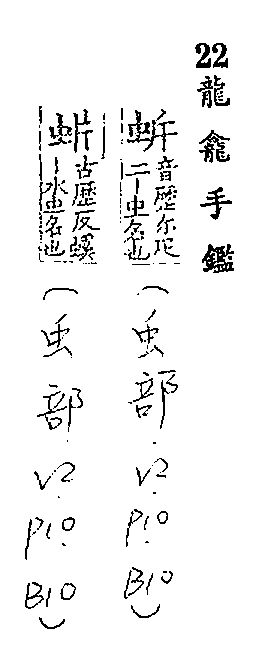 22龍龕手鑑
音歷尔疋
二丨虫名也
(虫部.V2.P10.B10)
古歷反螇
丨水虫名也
(虫部.V2.P10.B10)